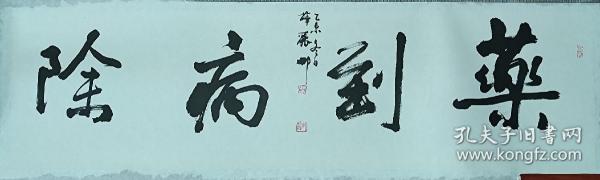 藥到病除
乙未冬日
孔夫子旧书网
www.kongfz.com